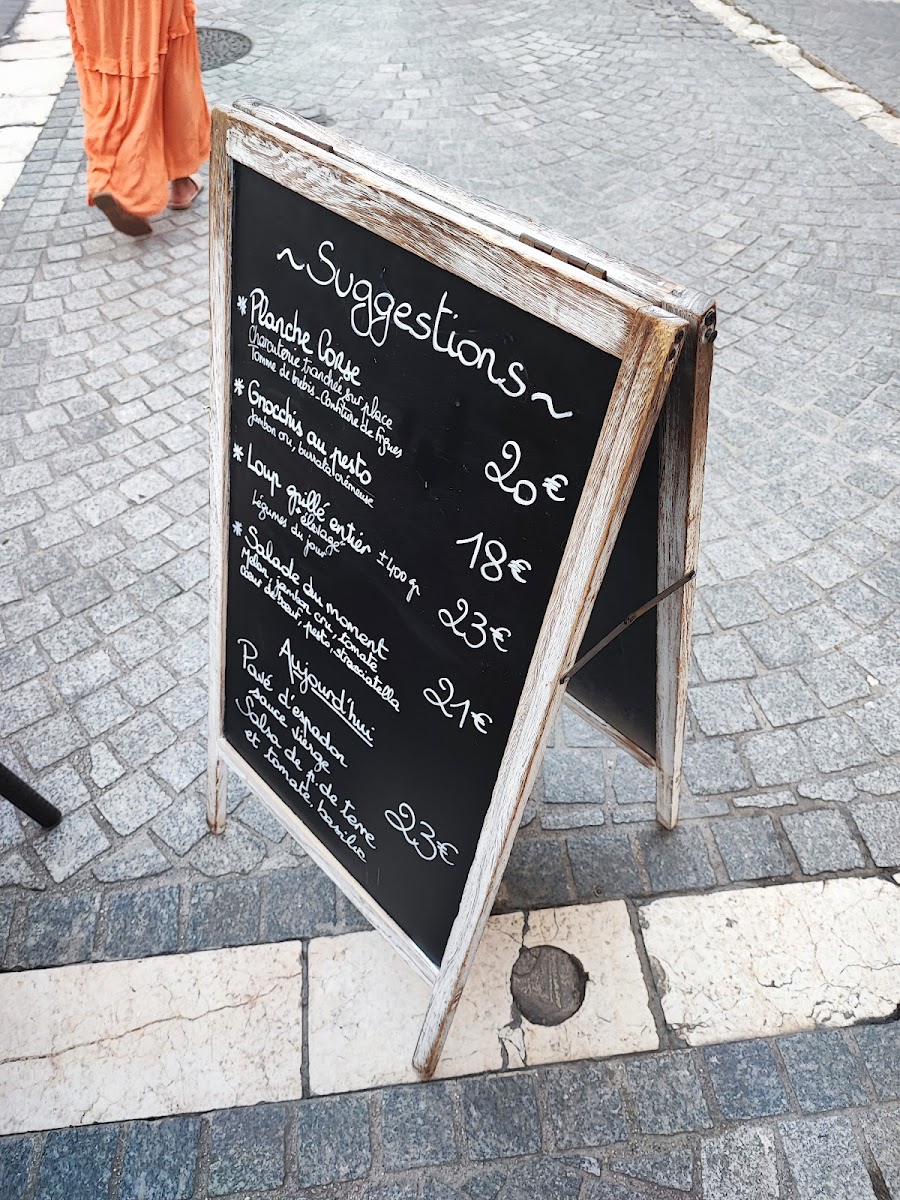 ~Suggestions~
* Planche Corse
Charcuterie tranchée sur place
Tomme de brebis - Confiture de Figues
20€
* Gnocchis au pesto
jambon cru, burrata crémeuse
18€
* Loup grillé entier ±400gr
"élevage"
Légumes du jour
23€
* Salade du moment
Melon, jambon cru, tomate
cœur de bœuf, pesto, stracciatella
21€
Aujourd'hui
Pavé d'espadon
sauce vierge
Salsa de p. de terre
et tomate, basilic
23€